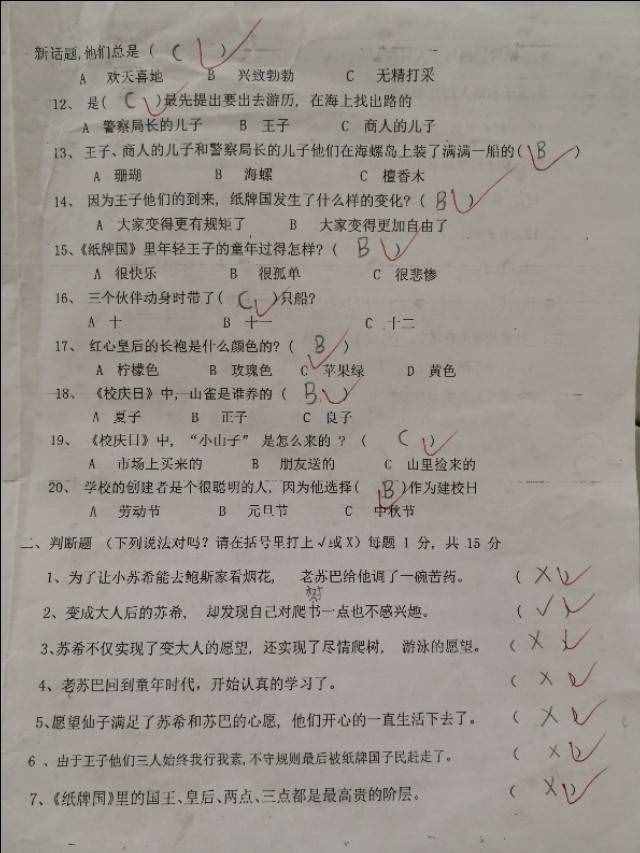 新话题,他们总是 ( C )
A 欢天喜地 B 兴致勃勃 C 无精打采
12、 是( C )最先提出要出去游历, 在海上找出路的
A 警察局长的儿子 B 王子 C 商人的儿子
13、王子、商人的儿子和警察局长的儿子他们在海螺岛上装了满满一船的( B )
A 珊瑚 B 海螺 C 檀香木
14、 因为王子他们的到来, 纸牌国发生了什么样的变化? ( B )
A 大家变得更有规矩了 B 大家变得更加自由了
15、《纸牌国》里年轻王子的童年过得怎样? ( B )
A 很快乐 B 很孤单 C 很悲惨
16、 三个伙伴动身时带了( C )只船?
A 十 B 十一 C 十二
17、 红心皇后的长袍是什么颜色的? ( B )
A 柠檬色 B 玫瑰色 C 苹果绿 D 黄色
18、 《校庆日》中,山雀是谁养的 ( B )
A 夏子 B 正子 C 良子
19、 《校庆日》中, “小山子” 是怎么来的 ? ( C )
A 市场上买来的 B 朋友送的 C 山里捡来的
20、 学校的创建者是个很聪明的人, 因为他选择( B )作为建校日
A 劳动节 B 元旦节 C 中秋节
二、判断题 (下列说法对吗? 请在括号里打上√或X) 每题 1 分, 共 15 分
1、为了让小苏希能去鲍斯家看烟花, 老苏巴给他调了一碗苦药。 ( X )
2、变成大人后的苏希, 却发现自己对爬书一点也不感兴趣。 ( √ )
树
3、苏希不仅实现了变大人的愿望, 还实现了尽情爬树, 游泳的愿望。 ( X )
4、老苏巴回到童年时代, 开始认真的学习了。 ( X )
5、愿望仙子满足了苏希和苏巴的心愿, 他们开心的一直生活下去了。 ( X )
6 、由于王子他们三人始终我行我素,不守规则最后被纸牌国子民赶走了。 ( X )
7、《纸牌国》里的国王、皇后、两点、三点都是最高贵的阶层。 ( X )